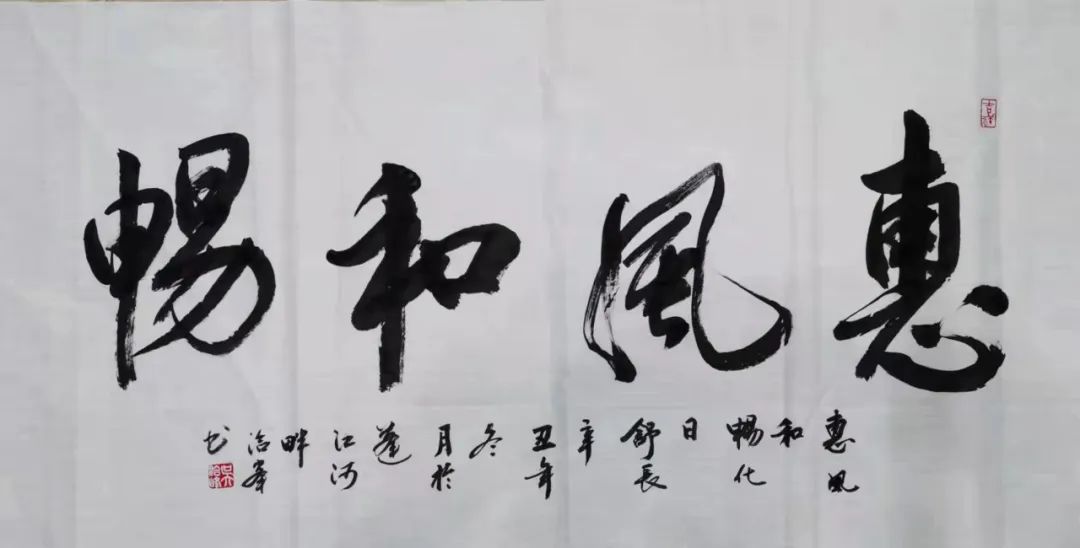 惠風和暢
惠風
和
暢化
日
舒長
辛
丑年
冬
月於
蓬
江河
畔
洽峯
书